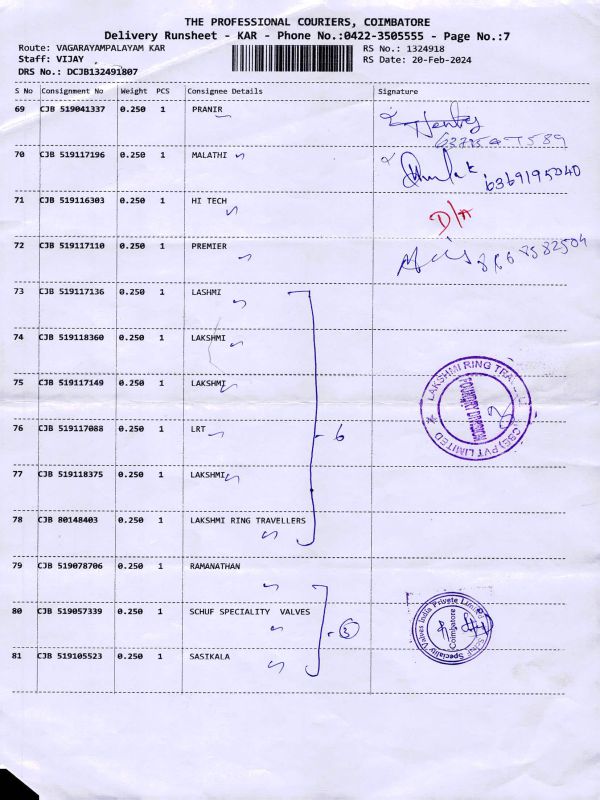 THE PROFESSIONAL COURIERS, COIMBATORE
Delivery Runsheet - KAR - Phone No.:0422-3505555 - Page No.:7
Route: VAGARAYAMPALAYAM KAR RS No.: 1324918
Staff: VIJAY RS Date: 20-Feb-2024
DRS No.: DCJB132491807
S No Consignment No Weight PCS Consignee Details Signature
69 CJB 519041337 0.250 1 PRANIR
70 CJB 519117196 0.250 1 MALATHI
6369195040
71 CJB 519116303 0.250 1 HI TECH
72 CJB 519117110 0.250 1 PREMIER
8668582504
73 CJB 519117136 0.250 1 LASHMI
74 CJB 519118360 0.250 1 LAKSHMI
75 CJB 519117149 0.250 1 LAKSHMI
76 CJB 519117088 0.250 1 LRT
6
LAKSHMI RING TRAVELLERS (CBE) PVT LIMITED
FOUNDRY DIVISION
77 CJB 519118375 0.250 1 LAKSHMI
78 CJB 80148403 0.250 1 LAKSHMI RING TRAVELLERS
79 CJB 519078706 0.250 1 RAMANATHAN
80 CJB 519057339 0.250 1 SCHUF SPECIALITY VALVES
3
Schuf Speciality Valves India Private Limited
Coimbatore
81 CJB 519105523 0.250 1 SASIKALA